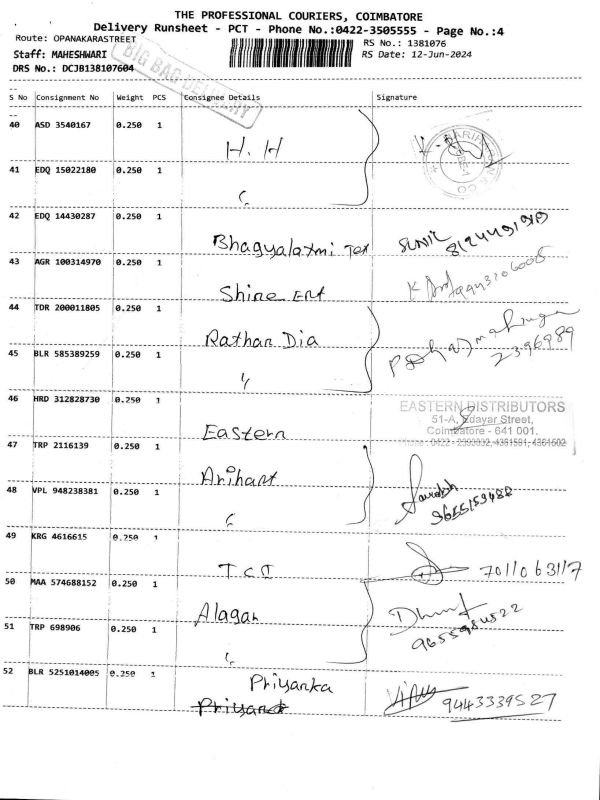 THE PROFESSIONAL COURIERS, COIMBATORE
Delivery Runsheet - PCT - Phone No.:0422-3505555 - Page No.:4
Route: OPANAKARASTREET
RS No.: 1381076
Staff: MAHESHWARI
RS Date: 12-Jun-2024
DRS No.: DCJB138107604
BIG BAG DELIVERY
S No Consignment No Weight PCS Consignee Details Signature
40 ASD 3540167 0.250 1
H. H
41 EDQ 15022180 0.250 1
42 EDQ 14430287 0.250 1
Bhagyalaxmi Tex SUNIL
8124491919
43 AGR 100314970 0.250 1
Shine Ent
44 TDR 200011805 0.250 1
Rathan Dia
2396989
45 BLR 585389259 0.250 1
46 HRD 312828730 0.250 1
EASTERN DISTRIBUTORS
51-A, Edayar Street,
Coimbatore - 641 001.
Eastern
47 TRP 2116139 0.250 1
Arihant
48 VPL 948238381 0.250 1
49 KRG 4616615 0.250 1
TCI 7011063117
50 MAA 574688152 0.250 1
Alagan
9655984522
51 TRP 698906 0.250 1
52 BLR 5251014005 0.250 1
Priyanka
9443339527